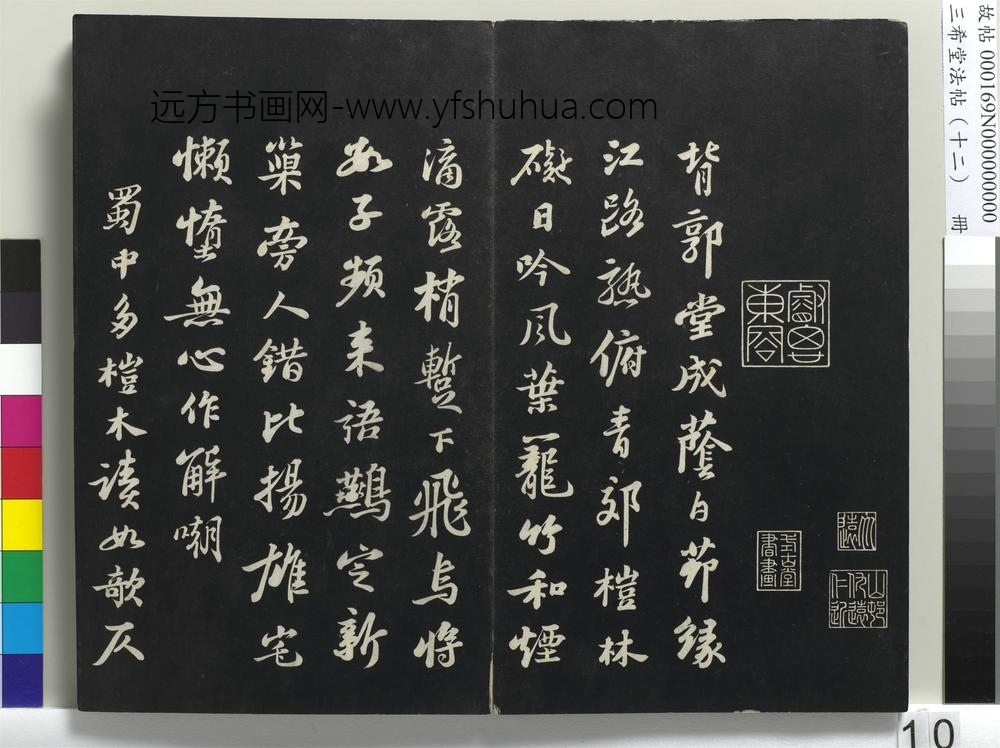 远方书画网-www.yfshuhua.com
故帖 000169N000000000
三希堂法帖（十二） 冊
背郭堂成蔭白茆緣
江路熟俯青郊榿林
礙日吟風葉籠竹和煙
滴露梢蹔下飛烏將
數子頻來語鷰定新
巢旁人錯比揚雄宅
懶惰無心作解嘲
蜀中多榿木讀如欹仄
書畫
10